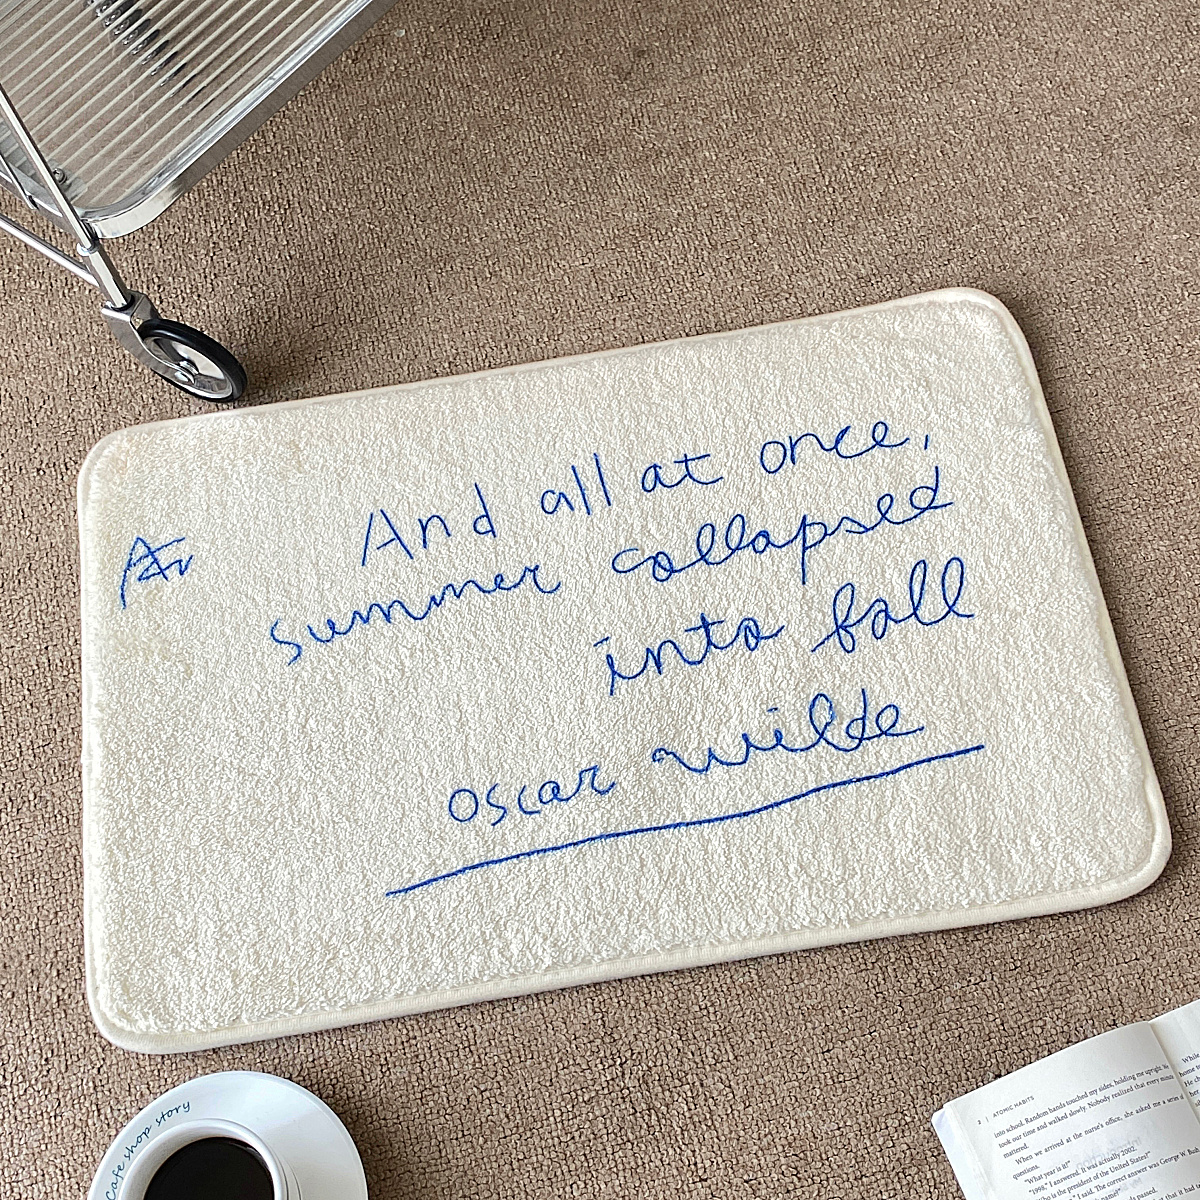 And all at once,
summer collapsed
into fall
oscar wilde
cafe shop story
2 | ATOMIC HABITS
into school. Random hands touched my sides, holding me upright. We
took our time and walked slowly. Nobody realized that every minute
mattered.
When we arrived at the nurse's office, she asked me a series
questions.
"What year is it?"
"1998," I answered. It was actually 2002.
is the president of the United States?"
I said. The correct answer was George W. Bush
name?"
passed.
While
home to
He ch
her